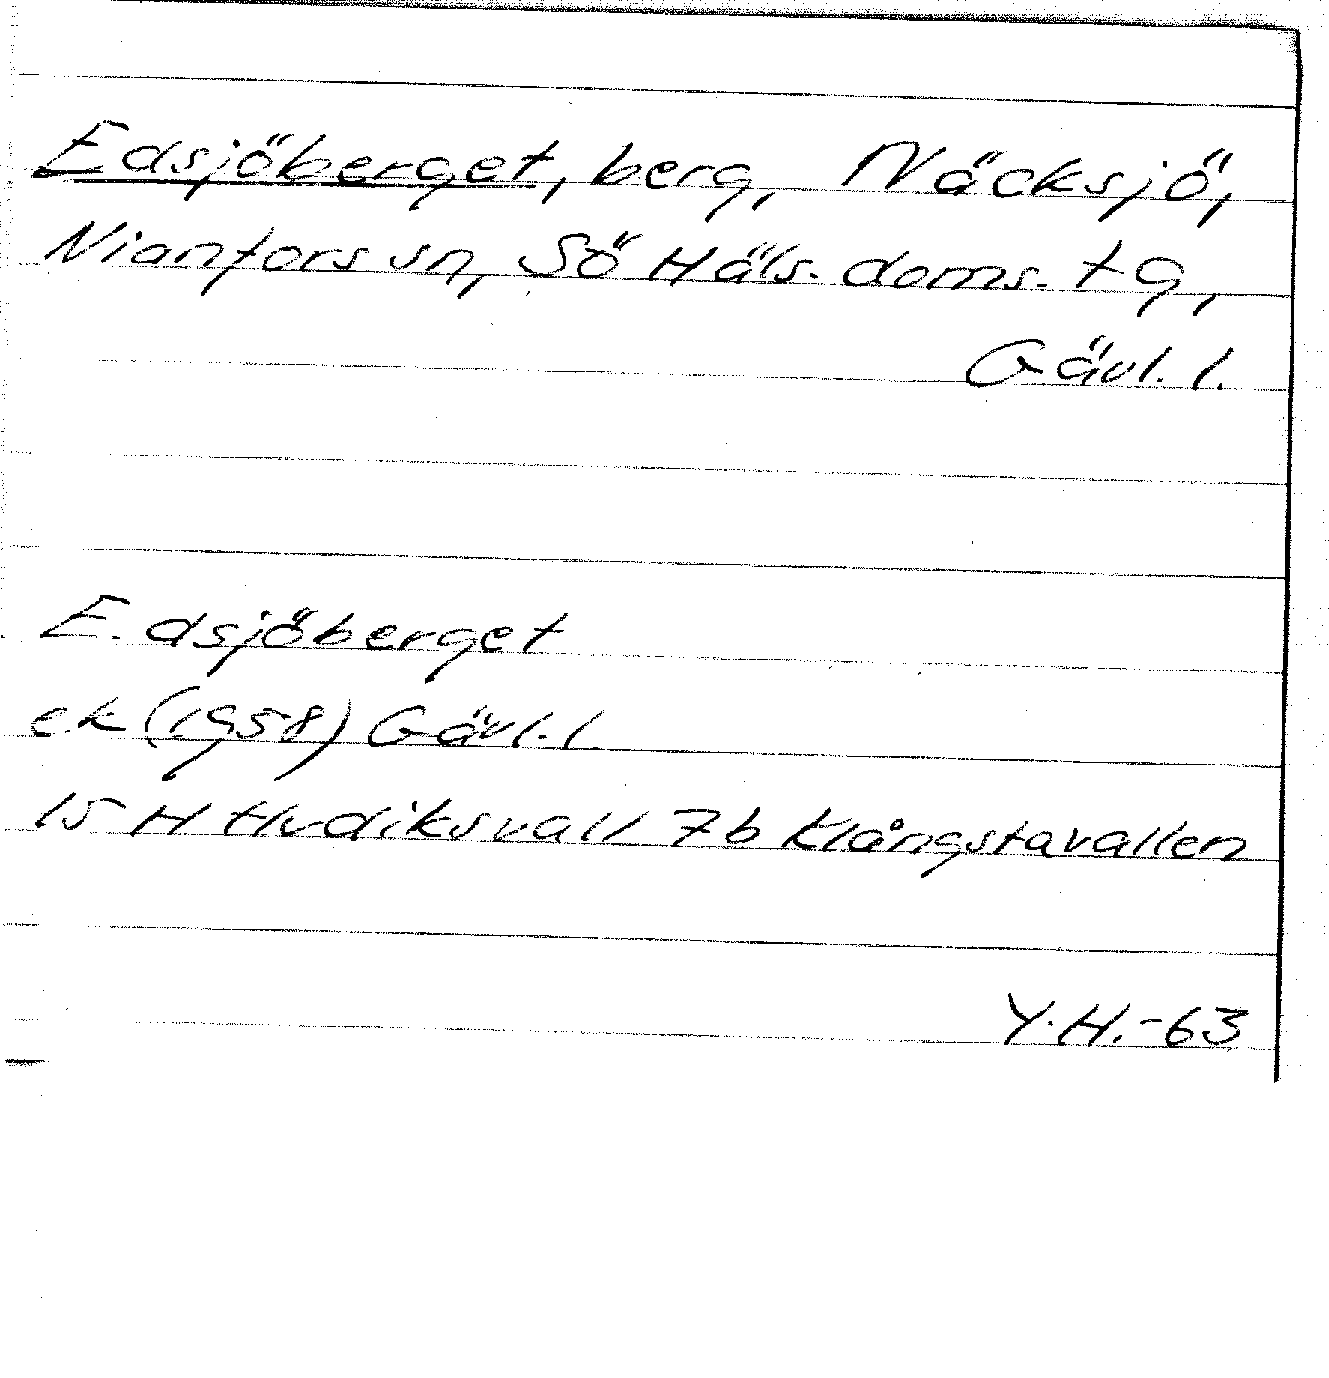 Edsjöberget, berg, Näcksjö,
Nianfors sn, Sö Häls. doms. tg,
Gävl. l.
E. dsjöberget
ek (1958) Gävl. l.
15 H Hudiksvall 7b Klångstavallen
Y.H.-63